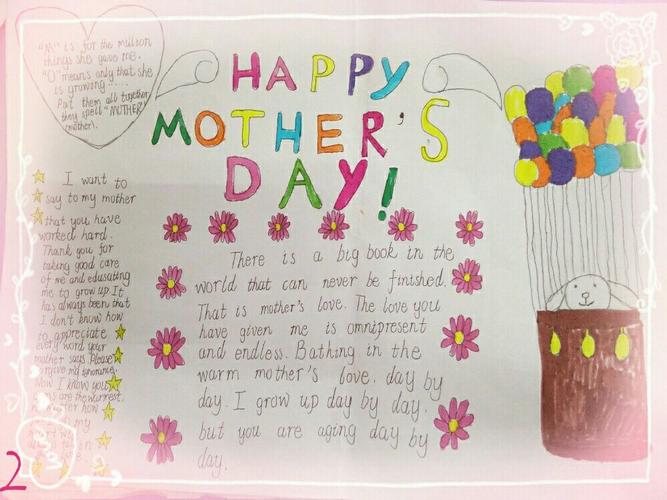 "M" is for the million
things she gave me.
"O" means only that she
is growing ....
Put them all together
they spell "MUTHER"
(mother).
HAPPY
MOTHER'S
DAY!
I want to
say to my mother
that you have
worked hard.
Thank you for
taking good care
of me and edusating
me to grow up. It
has always been that
I don't know how
to appreciate
every word your
mother says. Please
forgive my ignorance.
Now I know you
are the
how
my
There is a big book in the
world that can never be finished.
That is mother's love. The love you
have given me is omnipresent
and endless. Bathing in the
warm mother's love, day by
day. I grow up day by day,
but you are aging day by
day.
2